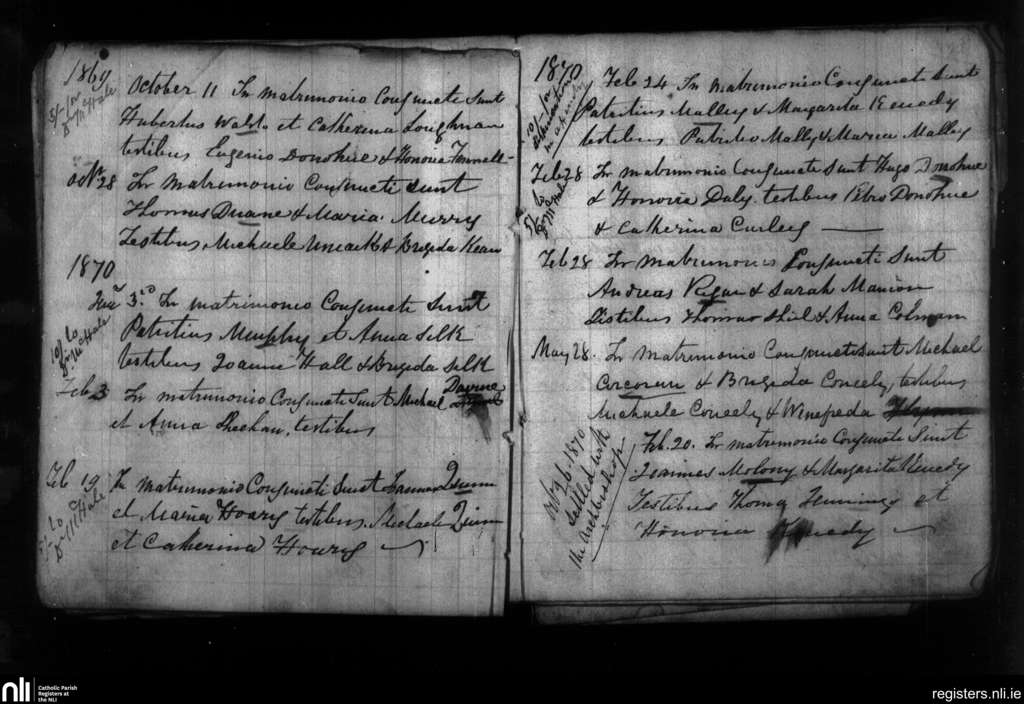 1869
5/- for
Dr McHale
October 11 In Matrimonio Conjuncte Sunt
Hubertus Wald. et Catherina Loughnan
testibus Eugenio Donohue & Honora
Octr 28 In Matrimonio Conjuncti sunt
Thomas Duane & Maria Murry
Testibus Michaele & Brigida Kean
1870
3rd In matrimonio Conjuncte Sunt
10/- to
Dr McHale
Patritius Murphy et Anna Silk
testibus Joanne Hall & Brigida Silk
Feb 3 In matrimonio Conjuncte Sunt Michael Davine
et Anna Sheehan, testibus
Feb 19 In Matrimonio Conjuncti Sunt Quinn
5/- to
Dr McHale
et Maria Hoary testibus Michaele Quin
et Catherina Hoary
1870
10/- for
Feb 24 In Matrimonio Conjuncte Sunt
Patritius Malley & Margarita Kenady
testibus Patritio Mally & Maria Malley
Feb 28 In matrimonio Conjuncte Sunt Hugo Donohue
5/- to
Dr McHale
& Honoria Daly testibus Petro Donohue
& Catherina Curley
Feb 28 In Matrimonio Conjuncti Sunt
Andreas & Sarah Manion
Testibus Thomas Shiel & Anna Colman
May 28. In Matrimonio Conjuncti sunt Michael
Corcoran & Brigida Coneely, testibus
Michaele Coneely & Winefreda Flynn
Oct 26 1870
Settled with
the Archbishop
Feb. 20. In matrimonio Conjuncte Sunt
Molony & Margarita Kenedy
Testibus Thoma Jennings et
Honoria Kenedy
nli
Catholic Parish
Registers at
the NLI
registers.nli.ie